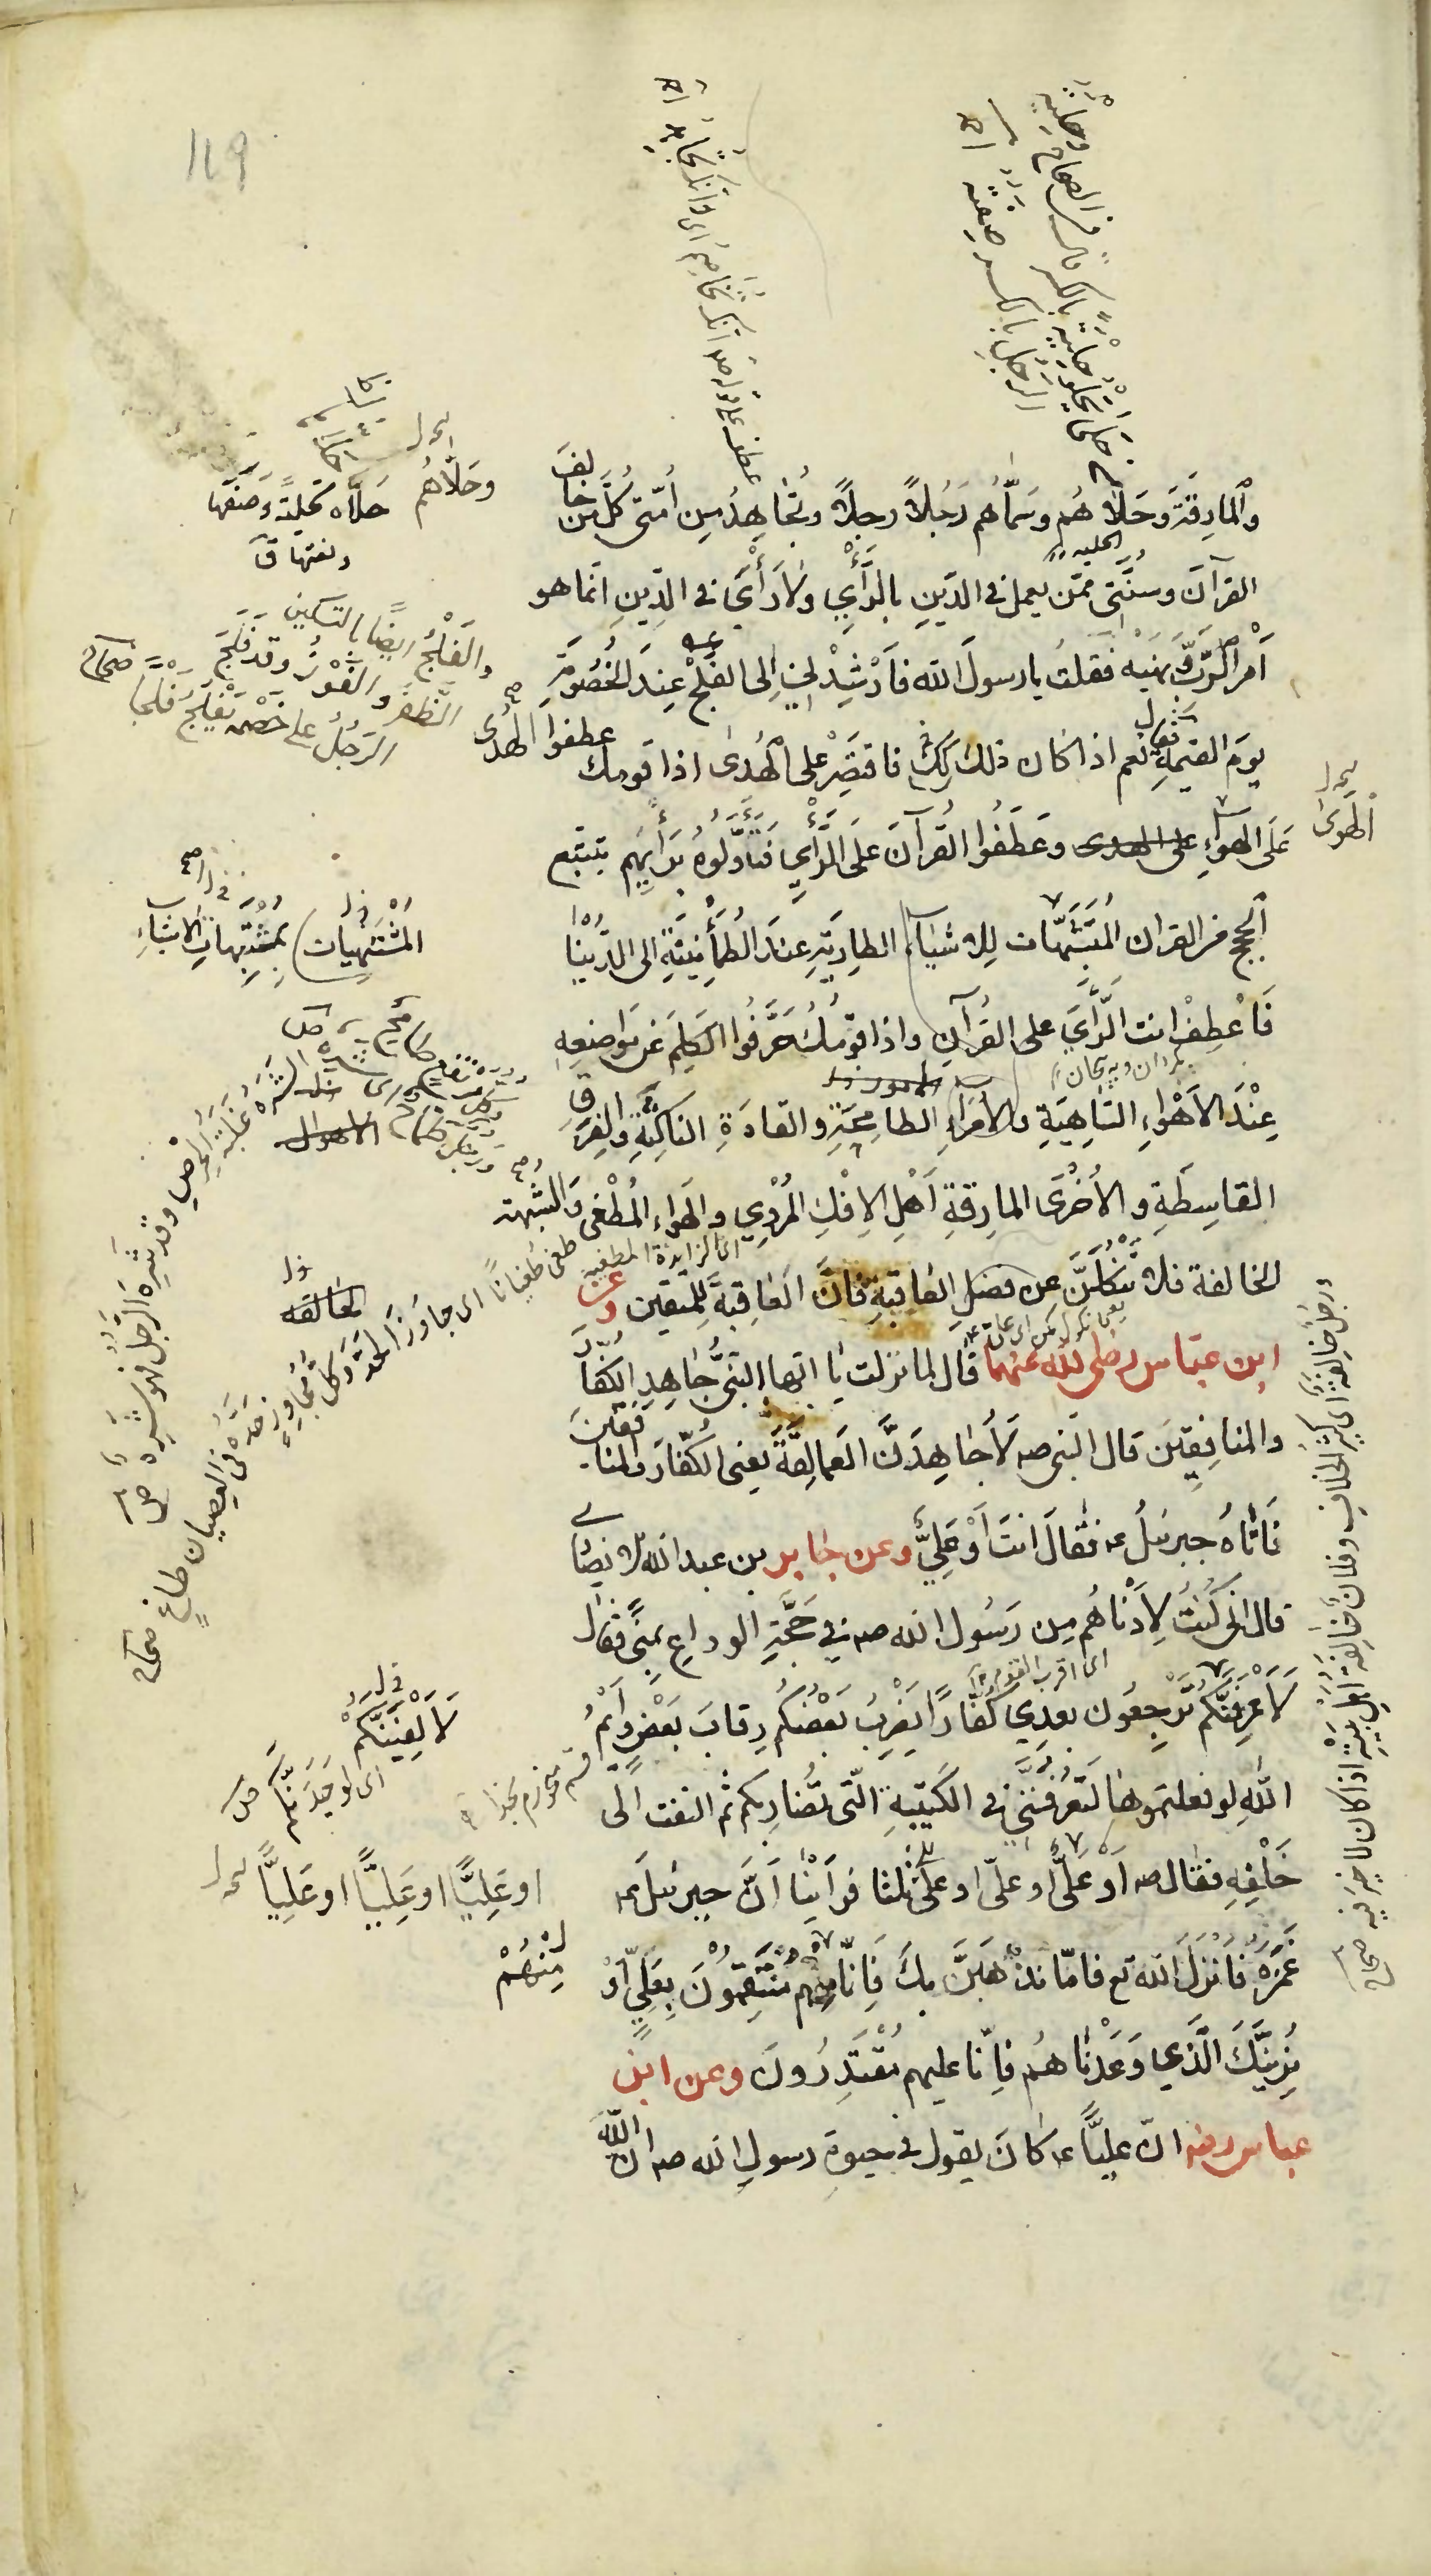 والمارقة وحلاهم وسمّاهم رجلاً رجلاً وتجاهد من أمّتي كلّ من خالف
القرآن وسنّتي ممّن يعمل في الدّين بالرّأي ولا رأي في الدّين انّما هو
أمر الرّبّ ونهيه فقلت يا رسول الله فأرشدني إلى الفلج عند الخصومة
يوم القيمة فقال نعم اذا كان ذلك كذلك فاقتصر على الهدى اذا قومك عطفوا الهدى
على الهواء على الهدى وعطفوا القرآن على الرّأي فتأوّلوه برأيهم بتتبع
الحجج من القران المشتبهات للاشياء الطارية عند الطّمأنينة الى الدّنيا
فأعطف انت الرّأي على القرآن واذا قومك حرّفوا الكلم عن مواضعه
عند الاهواء السّاهية والأمراء الطامحة والقادة الناكثة والفرقة
القاسطة والأخرى المارقة أهل الإفك المردي والهواء المطغي والشبهة
الخالفة فلا تنكلنّ عن فضل العاقبة فإنّ العاقبة للمتقين وعن
ابن عبّاس رضي الله عنهما قال لما نزلت يا ايّها النّبيّ جاهد الكفّار
والمنافقين قال النبي صـ لأجاهدنّ العمالقة يعني الكفّار والمنافقين
فأتاه جبرئيل عـ فقال انت أو عليّ وعن جابر بن عبد الله الانصاري
قال انّي كنت لأدناهم من رسول الله صـ في حجّة الوداع بمنى فقال
لأعرفنّكم ترجعون بعدي كفّاراً يضرب بعضكم رقاب بعض وأيم
الله لو فعلتموها لتعرفنّني في الكتيبة الّتي تضاربكم ثم التفت الى
خلفه فقال صـ أو عليّ او عليّ او عليّ ثلثا فرأينا أنّ جبرئيل عـ
غمزه فأنزل الله تع فامّا نذهبنّ بك فإنّا منهم منتقمون بعليّ أو
نرينّك الّذي وعدناهم فإنّا عليهم مقتدرون وعن ابن
عباس رضـ انّ عليّاً عـ كان يقول في حيوة رسول الله صـ انّ الله
وحلاّهم
حلاّه تحلية وصفها
ونعتها ق
والفلج ايضاً بالتسكين
الظفر والفوز وقد فلج
الرّجل على خصمه يفلج فلجا صحاح
الهوى
المشتهيات
بمشتبهات الاشياء
الخالقه
لألفينّكم
اى لوجدتكم
او عليّاً او عليّاً او عليّاً
منهم
الشره غلبة الحرص وقد شره الرّجل فهو شره ص
طغى طغياناً اى جاوز الحدّ وكلّ مجاوز حدّه في العصيان طاغ صحاح
رجل خالفة اى كثير الخلاف وفلان خالفة اهل بيته اذا كان لا خير فيه صحاح
119